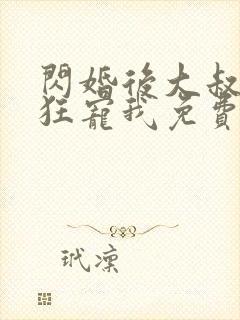 閃婚後大叔
狂寵我免費
玳凜